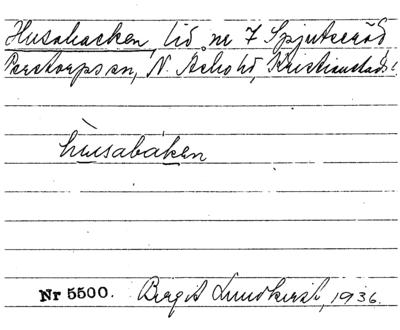 Husabacken, lid nr 7 Spjutseröd,
Perstorps sn, N. Åsbo hd, Kristianstads l.
hùsabàken
Nr 5500. Bergit Lundkvist, 1936.